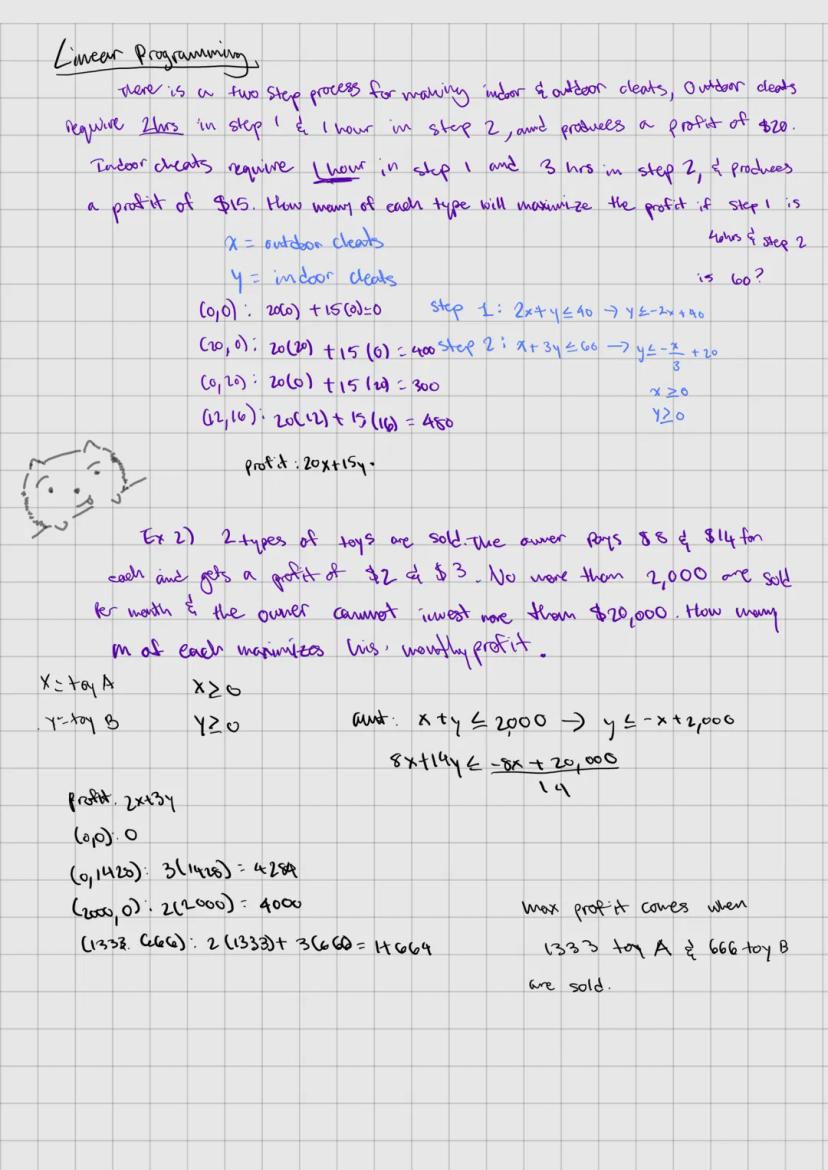 Linear Programming
There is a two step process for making indoor & outdoor cleats, Outdoor cleats
require 2hrs in step 1 & 1 hour in step 2, and produces a profit of $20.
Indoor cleats require 1 hour in step 1 and 3 hrs in step 2, & produces
a profit of $15. How many of each type will maximize the profit if step 1 is
40hrs & step 2
is 60?
x = outdoor cleats
y = indoor cleats
(0,0): 20(0) + 15(0)=0
step 1: 2x+y ≤ 40 → y ≤ -2x + 40
(20,0): 20(20) + 15(0) = 400
step 2: x+3y ≤ 60 → y ≤ -x/3 + 20
(0,20): 20(0) + 15(20) = 300
x ≥ 0
(12,16): 20(12) + 15(16) = 480
y ≥ 0
profit: 20x+15y.
Ex 2) 2 types of toys are sold. The owner pays $8 & $14 for
each and gets a profit of $2 & $3. No more than 2,000 are sold
per month & the owner cannot invest more than $20,000. How many
m of each maximizes his monthly profit.
X = toy A
X ≥ 0
Y = toy B
Y ≥ 0
amt: x + y ≤ 2,000 → y ≤ -x + 2,000
8x+14y ≤ -8x + 20,000/14
profit: 2x+3y
(0,0): 0
(0,1428): 3(1428) = 4284
(2000,0): 2(2000) = 4000
(1333, 666): 2(1333) + 3(666) = 4664
max profit comes when
1333 toy A & 666 toy B
are sold.